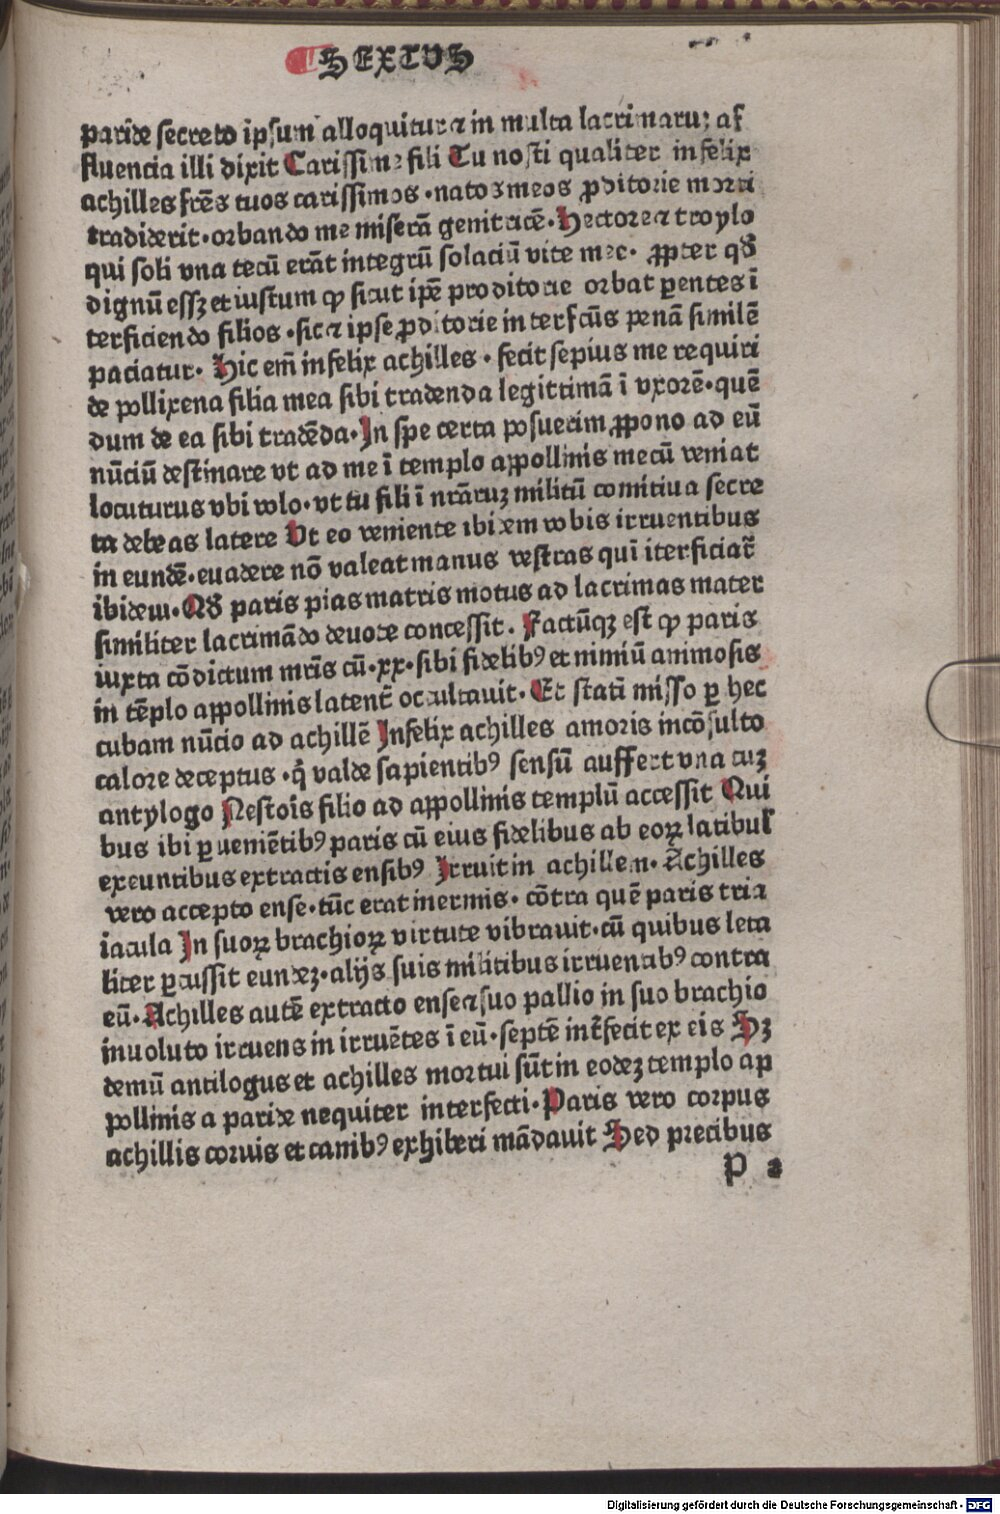 SEXTVS
paride secreto ipsum alloquitur ⁊ in multa lacrimaruꝫ af
fluencia illi dixit Carissime fili Tu nosti qualiter infelix
achilles fr̃es tuos carissimos · natos meos ꝓditorie morti
tradiderit · orbando me miserā genitricē · Hectore ⁊ troylo
qui soli vna tecū erāt integrū solaciū vite mee · ꝓpter qđ
dignū essꝫ et iustum ꝙ sicut ipē proditorie orbat ꝑentes ī
terficiendo filios · sic ⁊ ipse ꝓditorie interfcūs penā similē
paciatur · Hic em̄ infelix achilles · fecit sepius me requiri
de pollixena filia mea sibi tradenda legittimā ī vxorē · quē
dum de ea sibi tradēda · In spe certa posuerim ꝓpono ad eū
nūciū destinare vt ad me ī templo appollinis mecū veniat
locuturus vbi volo · vt tu fili ī nr̄aruꝫ militū comitiua secre
ta debeas latere Vt eo veniente ibidem vobis irruentibus
in eundē · euadere nō valeat manus vestras quī iterficiat̄
ibidem · Qđ paris pias matris motus ad lacrimas mater
similiter lacrimādo deuote concessit . Factūqꝫ est ꝙ paris
iuxta cōdictum mr̄is cū · xx · sibi fidelibꝰ et nimiū animosis
in tēplo appollinis latent̄ occultauit · Et stati misso ꝑ hec
cubam nūcio ad achillē Infelix achilles amoris incōsulto
calore deceptus · q̄ valde sapientibꝰ sensū auffert vna cuꝫ
antylogo Nestoīs filio ad appollinis templū accessit Qui
bus ibi ꝑueniētibꝰ paris cū eius fidelibus ab eoꝝ latibul
exeuntibus extractis ensibꝰ Irruit in achillem · Achilles
vero accepto ense · tūc erat inermis · cōtra quē paris tria
iacula In suoꝝ brachioꝝ virtute vibrauit · cū quibus leta
liter ꝑcussit eundeꝫ · alijs suis militibus irruentibꝰ contra
eū · Achilles autē extracto ense ⁊ suo pallio in suo brachio
inuoluto irruens in irruētes ī eū · septē int̄fecit ex eis Sꝫ
demū antilogus et achilles mortui sūt in eodeꝫ templo ap
pollinis a paride nequiter interfecti · Paris vero corpus
achillis coruis et canibꝰ exhiberi mādauit Sed precibus
P 2
Digitalisierung gefördert durch die Deutsche Forschungsgemeinschaft - DFG